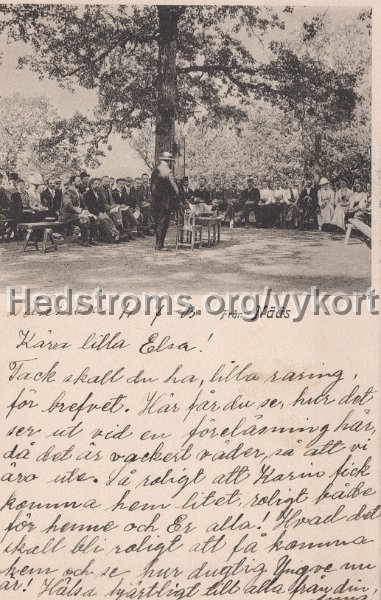 Hedstroms.org/vykort
Från Nääs
Kära lilla Elsa!
Tack skall du ha, lilla raring,
för brefvet. Här får du se, hur det
ser ut vid en föreläsning här,
då det är vackert väder, så att vi
äro ute. Så roligt att Karin fick
komma hem litet, roligt både
för henne och Er alla! Hvad det
skall bli roligt att få komma
hem och se hur dugtig Yngve nu
är! Hälsa hjärtligt till alla från din,